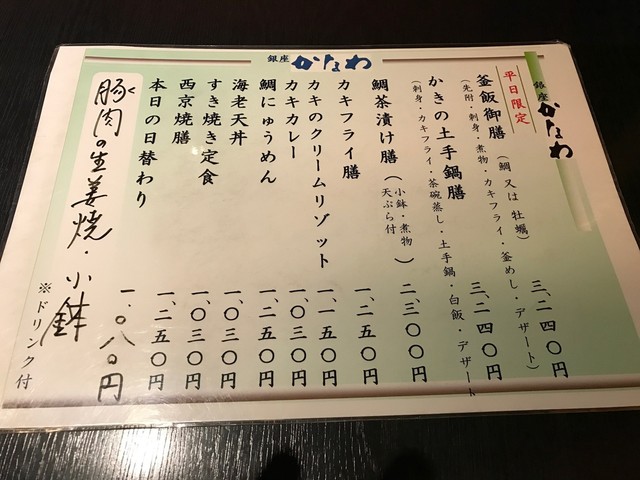 銀座 かなわ
銀座 かなわ
平日限定
釜飯御膳 (鯛 又は 牡蠣) 三、二四〇円
(先附・刺身・煮物・カキフライ・釜めし・デザート)
かきの土手鍋膳 三、二四〇円
(刺身・カキフライ・茶碗蒸し・土手鍋・白飯・デザート
鯛茶漬け膳 (小鉢・煮物 天ぷら付) 二、三〇〇円
カキフライ膳 一、二五〇円
カキのクリームリゾット 一、一五〇円
カキカレー 一、〇三〇円
鯛にゅうめん 一、二五〇円
海老天丼 一、〇三〇円
すき焼き定食 一、〇三〇円
西京焼膳 一、二五〇円
本日の日替わり 一、〇八〇円
豚肉の生姜焼・小鉢
※ドリンク付